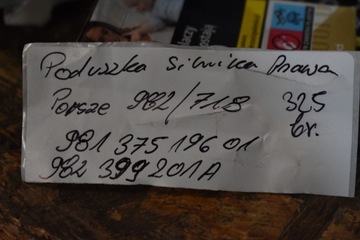 Poduszka silnika prawa
Porsze 982/718 325
br.
981 375 196 01
982 399 201A